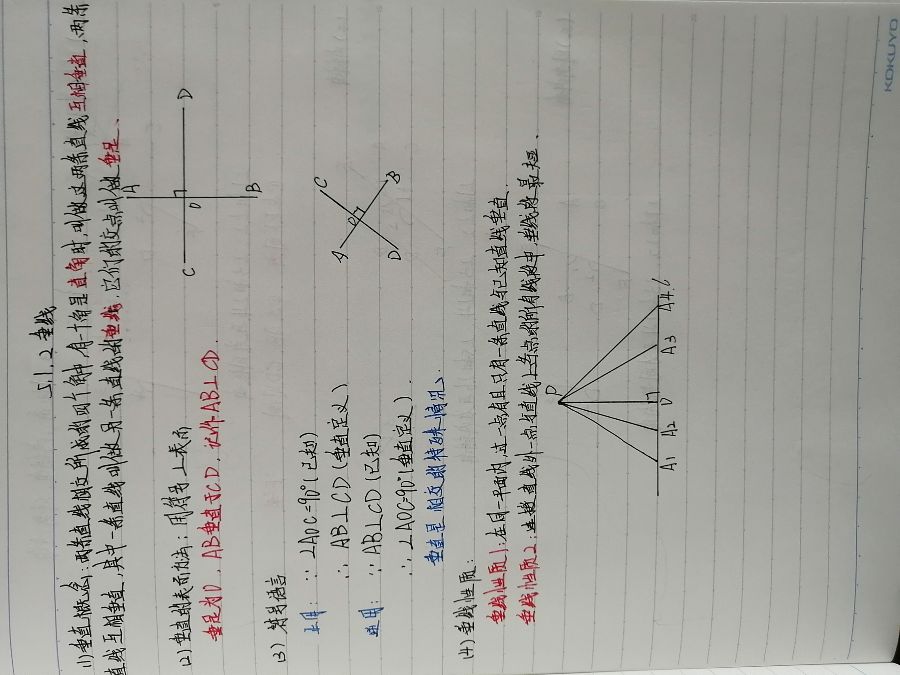 5.1.2 垂线
(1)垂直概念:两条直线相交所成的四个角中,有一个角是直角时,叫做这两条直线互相垂直,两条
直线互相垂直,其中一条直线叫做另一条直线的垂线,它们的交点叫做垂足、
A
C
O
D
B
(2)垂直的表示方法:用符号⊥表示
垂足为O,AB垂直于CD,记作AB⊥CD.
(3)符号语言
正用:∵∠AOC=90°(已知)
∴AB⊥CD(垂直定义)
逆用:∵AB⊥CD(已知)
∴∠AOC=90°(垂直定义).
A
C
O
D
B
垂直是相交的特殊情况.
(4)垂线性质:
垂线性质1:在同一平面内,过一点有且只有一条直线与已知直线垂直.
垂线性质2:连接直线外一点与直线上各点的所有线段中,垂线段最短.
P
A1 A2 D A3 A4
KOKUYO